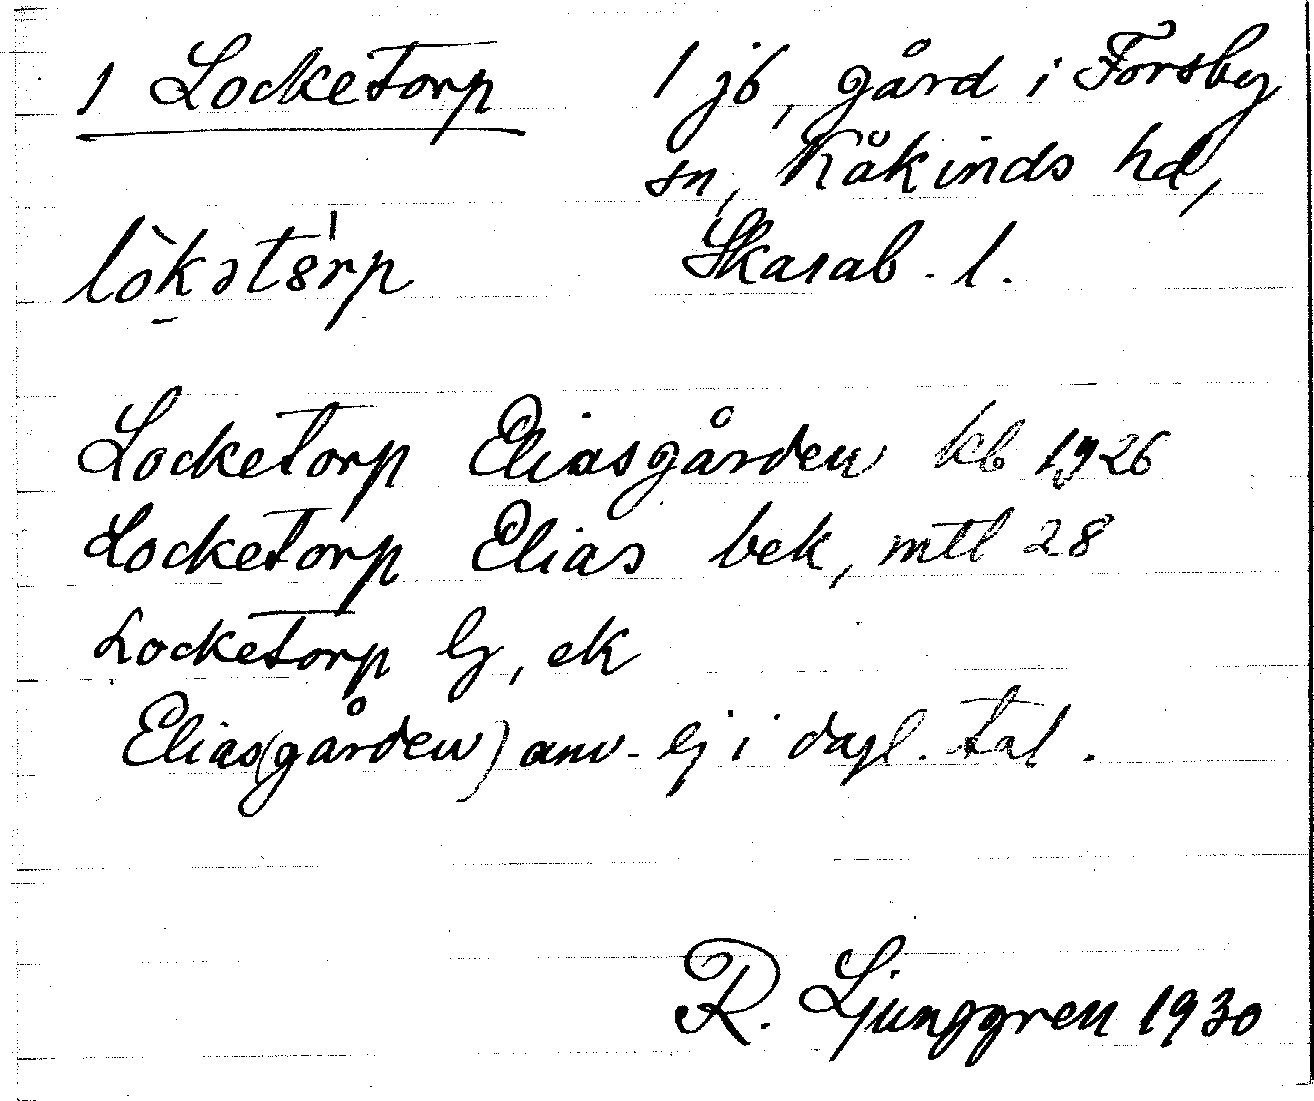 1 Locketorp
1 jb, gård i Forsby
sn, Kåkinds hd,
Skarab. l.
Locketorp Eliasgården kb 1926
Locketorp Elias bek, mtl 28
Locketorp G, ek
Elias(gården) anv. ej i dagl. tal.
R. Ljunggren 1930